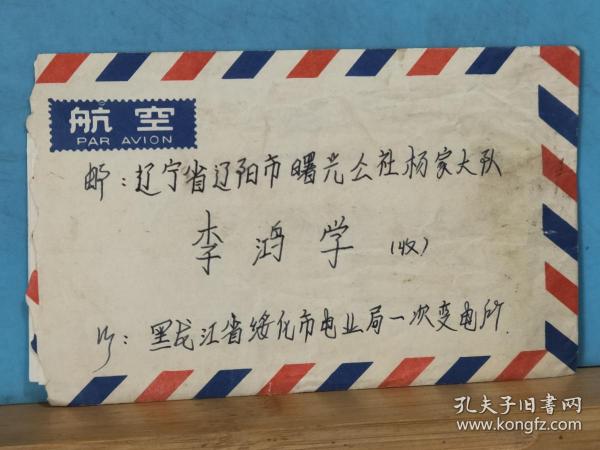 航空
PAR AVION
邮：辽宁省辽阳市曙光公社杨家大队
李鸿学（收）
黑龙江省绥化市电业局一次变电所
孔夫子旧书网
www.kongfz.com